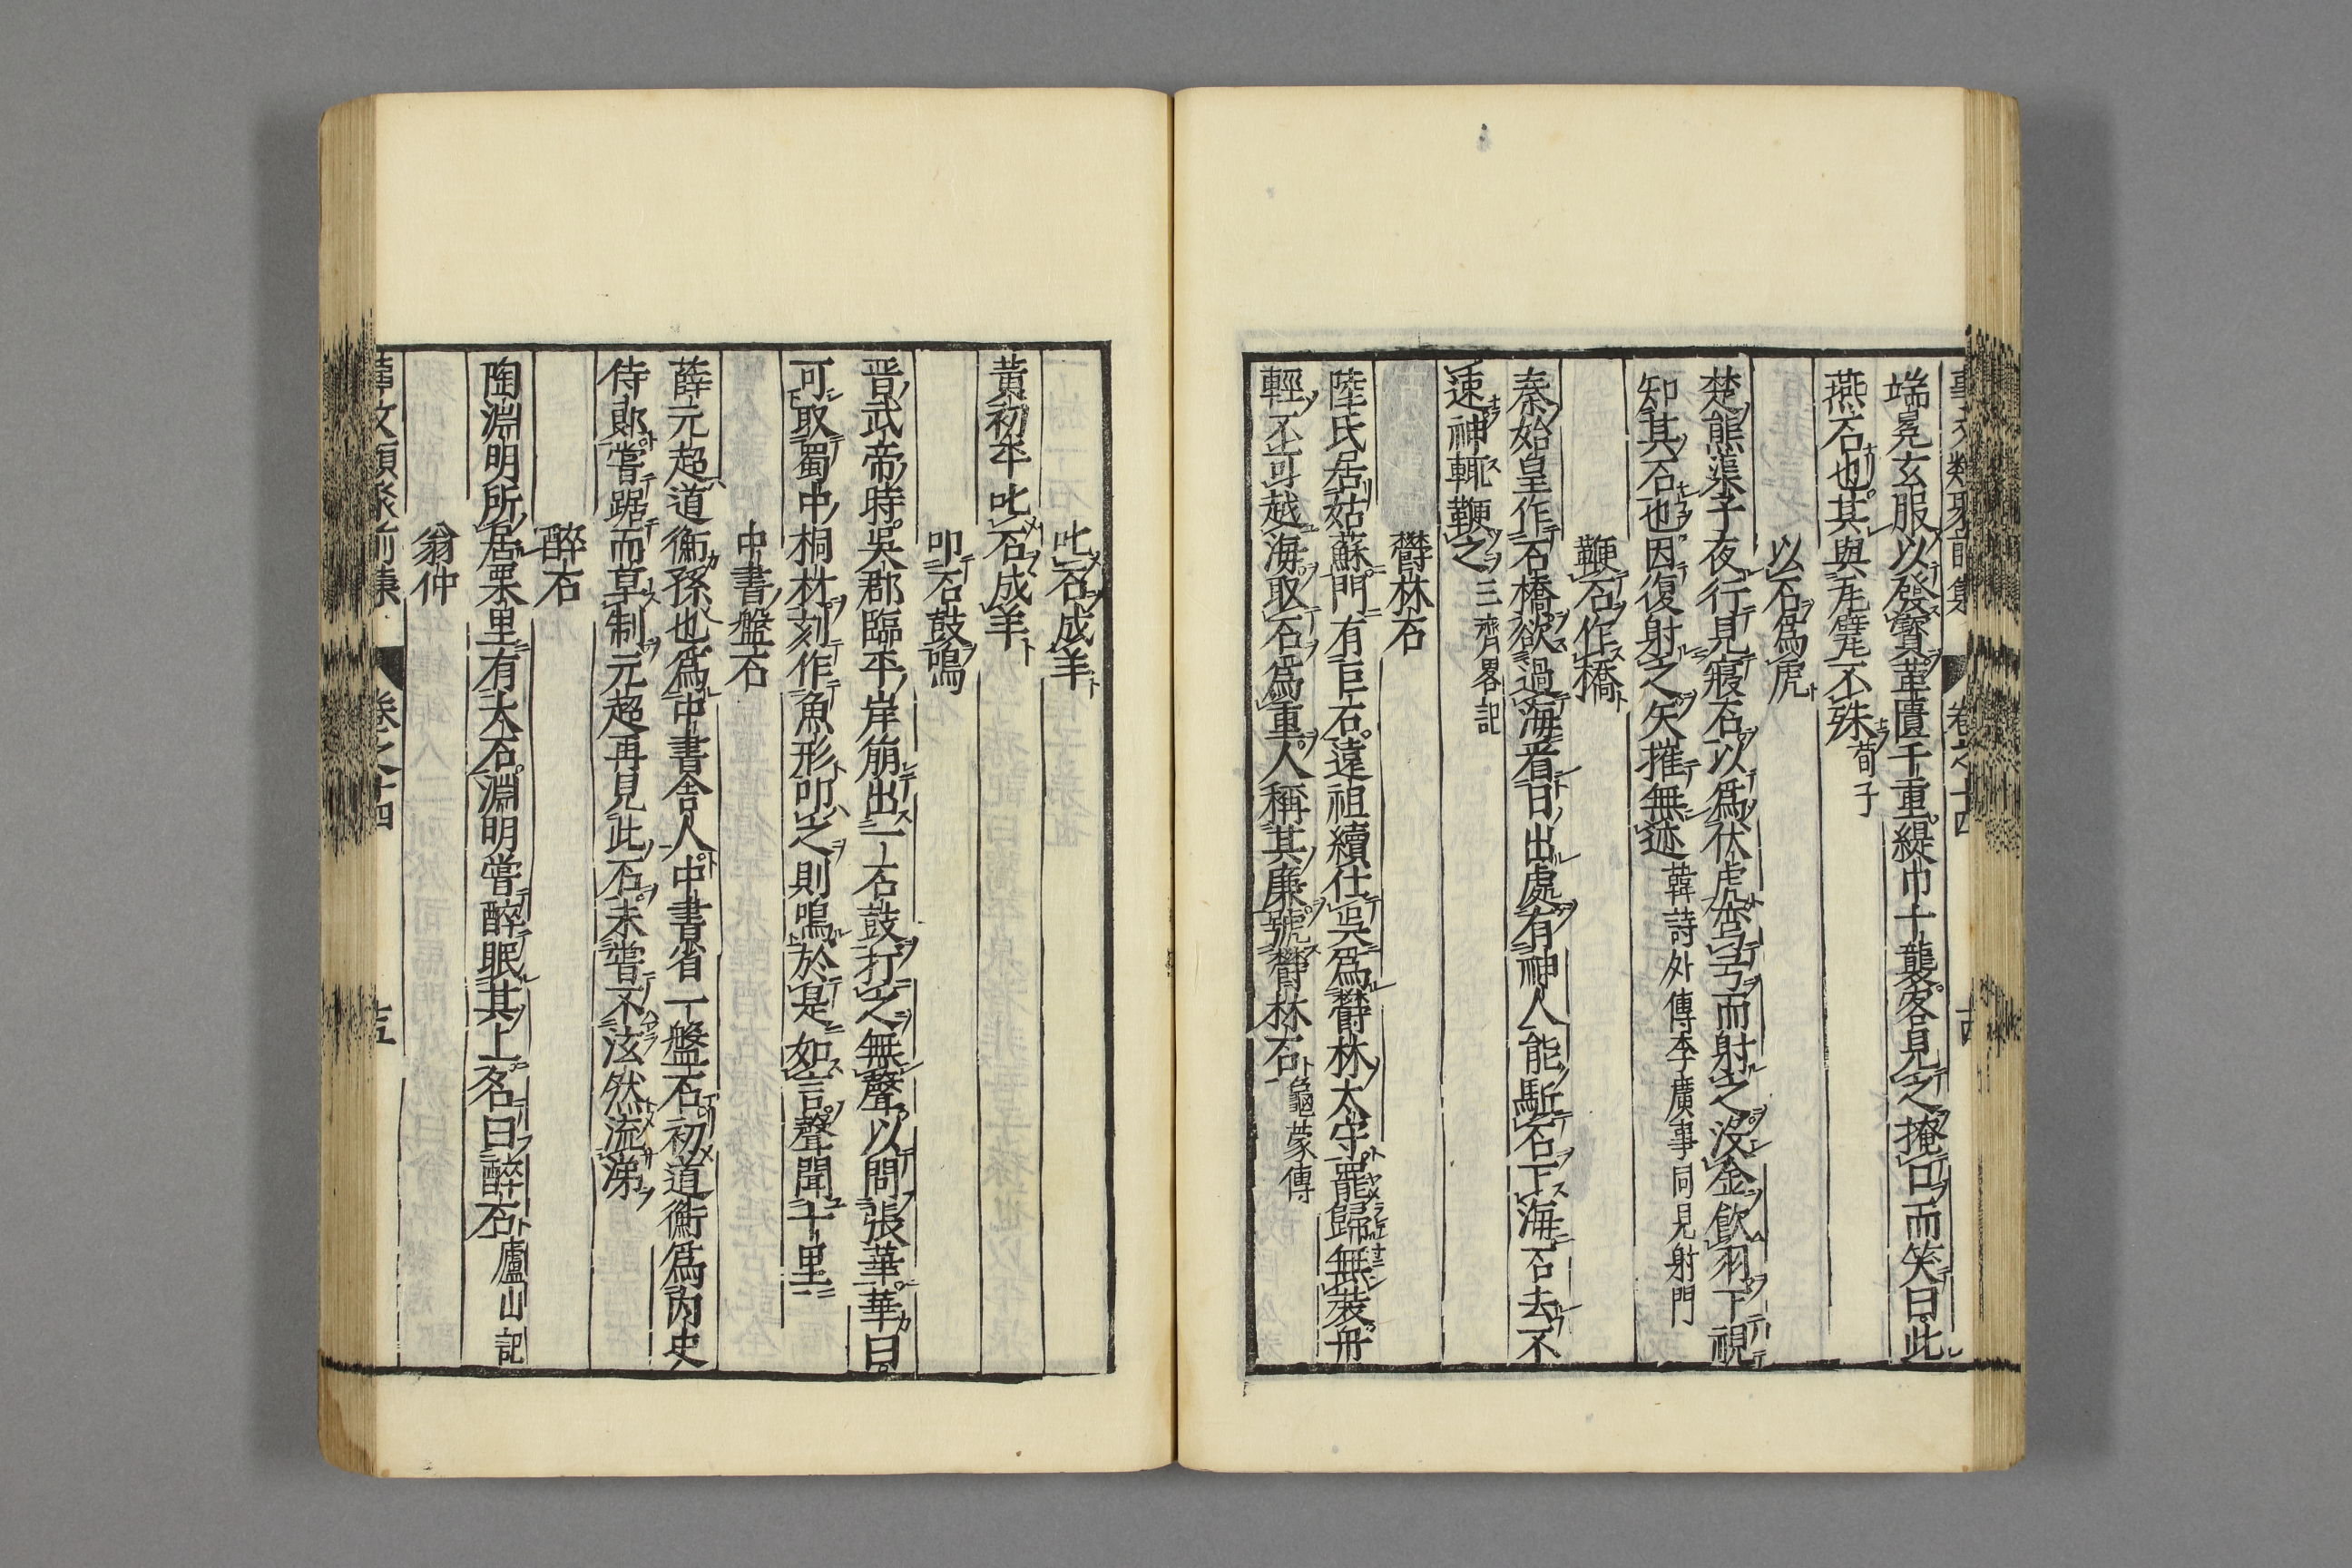 事文類聚前集 卷之十四 十四
端冕玄服以發寶革匱千重緹巾十襲客見之掩口而笑曰此
燕石也其與瓦甓不殊荀子
以石爲虎
楚熊渠子夜行見寢石以爲伏虎弯弓而射之沒金飲羽下視
知其石也因復射之矢摧無迹韓詩外傳李廣事同見射門
鞭石作橋
秦始皇作石橋欲過海看日出處有神人能駈石下海石去不
速神輒鞭之三齊畧記
欎林石
陸氏居姑蘇門有巨石遠祖續仕吳爲欎林太守罷歸無裝舟
輕不可越海取石爲重人稱其廉號欎林石龜蒙傳
叱石成羊
黃初平叱石成羊
叩石鼓鳴
晋武帝時吳郡臨平岸崩出一石鼓打之無聲以問張華華曰
可取蜀中桐材刻作魚形叩之則鳴於是如言聲聞十里
中書盤石
薛元超道衡孫也爲中書舍人中書省一盤石初道衡爲内史
侍郎嘗踞而草制元超再見此石未嘗不泫然流涕
醉石
陶淵明所居栗里有大石淵明嘗醉眠其上名曰醉石廬山記
翁仲
事文類聚前集 卷之十四 十五